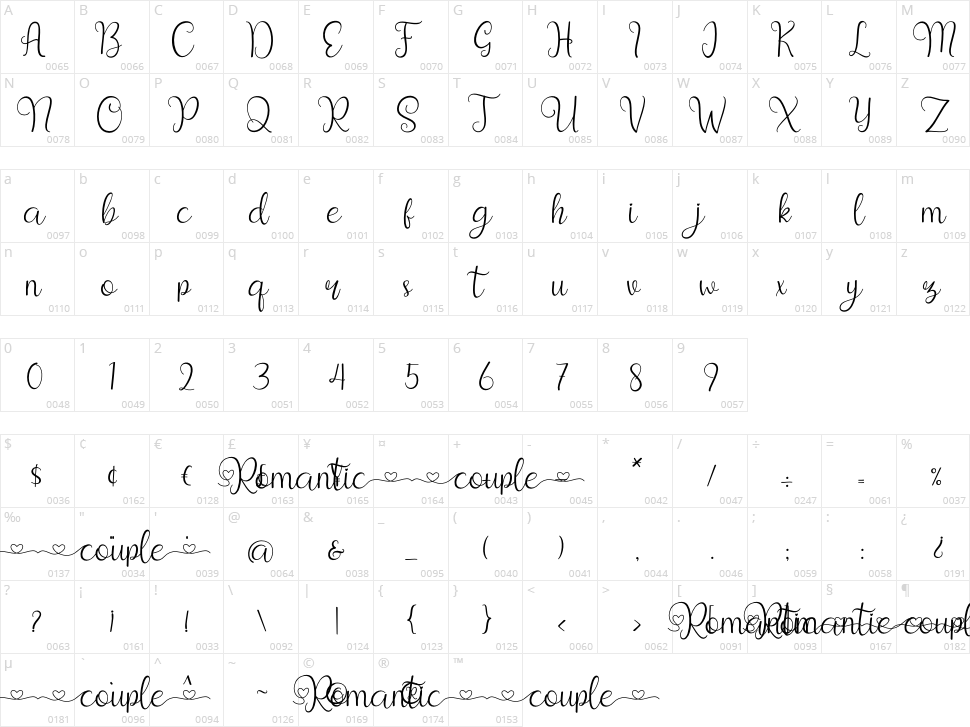 A B C D E F G H I J K L M
A B C D E F G H I J K L M
0065 0066 0067 0068 0069 0070 0071 0072 0073 0074 0075 0076 0077
N O P Q R S T U V W X Y Z
N O P Q R S T U V W X Y Z
0078 0079 0080 0081 0082 0083 0084 0085 0086 0087 0088 0089 0090
a b c d e f g h i j k l m
a b c d e f g h i j k l m
0097 0098 0099 0100 0101 0102 0103 0104 0105 0106 0107 0108 0109
n o p q r s t u v w x y z
n o p q r s t u v w x y z
0110 0111 0112 0113 0114 0115 0116 0117 0118 0119 0120 0121 0122
0 1 2 3 4 5 6 7 8 9
0 1 2 3 4 5 6 7 8 9
0048 0049 0050 0051 0052 0053 0054 0055 0056 0057
$ ¢ € £ ¥ ¤ + - * / ÷ = %
$ ¢ € Romantic couple * / ÷ = %
0036 0162 0128 0163 0165 0164 0043 0045 0042 0047 0247 0061 0037
‰ " ' @ & _ ( ) , . ; : ¿
couple @ & _ ( ) , . ; : ¿
0137 0034 0039 0064 0038 0095 0040 0041 0044 0046 0059 0058 0191
? ¡ ! \ | { } < > [ ] § ¶
? ¡ ! \ | { } < > Romantic Romantic coupl
0063 0161 0033 0092 0124 0123 0125 0060 0062 0091 0093 0167 0182
µ ` ^ ~ © ® ™
couple ^ ~ Romantic couple
0181 0096 0094 0126 0169 0174 0153